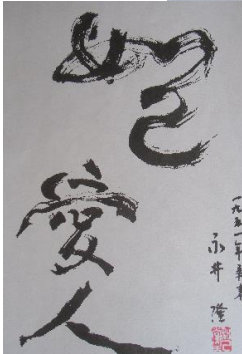 如己愛人
一九五一年
永井 隆